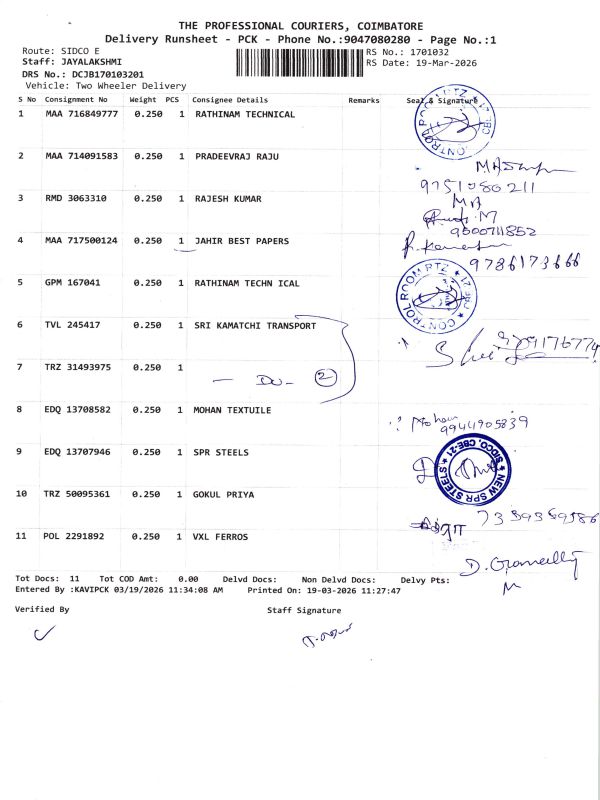 THE PROFESSIONAL COURIERS, COIMBATORE
Delivery Runsheet - PCK - Phone No.:9047080280 - Page No.:1
Route: SIDCO E
RS No.: 1701032
Staff: JAYALAKSHMI
RS Date: 19-Mar-2026
DRS No.: DCJB170103201
Vehicle: Two Wheeler Delivery
S No Consignment No Weight PCS Consignee Details Remarks Seal & Signature
1 MAA 716849777 0.250 1 RATHINAM TECHNICAL
CONTROL ROOM RTZ
2 MAA 714091583 0.250 1 PRADEEVRAJ RAJU
9751080211
3 RMD 3063310 0.250 1 RAJESH KUMAR
9600711852
4 MAA 717500124 0.250 1 JAHIR BEST PAPERS
9786173666
5 GPM 167041 0.250 1 RATHINAM TECHN ICAL
CONTROL ROOM RTZ
6 TVL 245417 0.250 1 SRI KAMATCHI TRANSPORT
7 TRZ 31493975 0.250 1
— DO — 2
8 EDQ 13708582 0.250 1 MOHAN TEXTUILE
Mohan
9944905839
9 EDQ 13707946 0.250 1 SPR STEELS
NEW SPR STEELS SIDCO, CBE-21
10 TRZ 50095361 0.250 1 GOKUL PRIYA
11 POL 2291892 0.250 1 VXL FERROS
Tot Docs: 11 Tot COD Amt: 0.00 Delvd Docs: Non Delvd Docs: Delvy Pts:
Entered By :KAVIPCK 03/19/2026 11:34:08 AM Printed On: 19-03-2026 11:27:47
Verified By Staff Signature